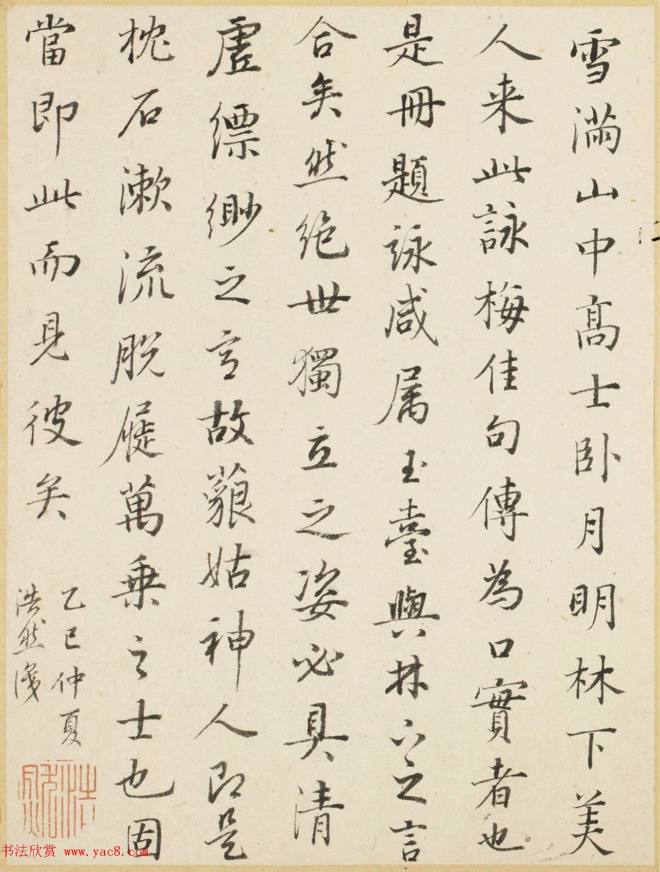 雪滿山中高士卧月明林下美
人来此詠梅佳句傳為口實者也
是冊題詠咸属玉臺與林下之言
合矣然絶世獨立之姿必具清
虚縹緲之言故藐姑神人即是
枕石漱流脱屣萬乗之士也固
當即此而見彼矣
乙巳仲夏
浩然識
书法欣赏 www.yac8.com